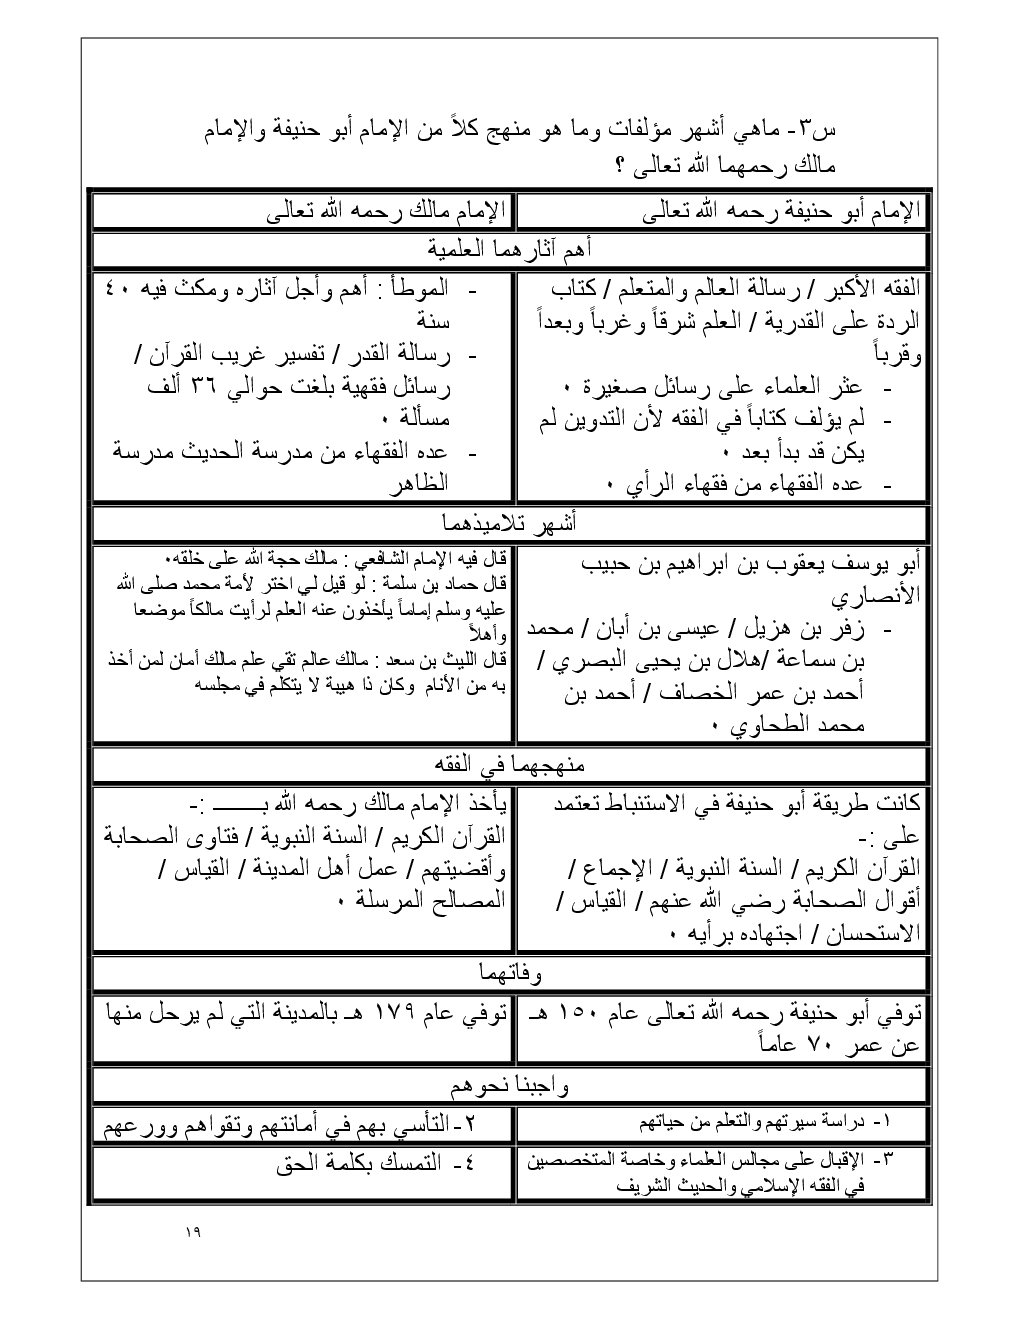 س٣- ماهي أشهر مؤلفات وما هو منهج كلاً من الإمام أبو حنيفة والإمام
مالك رحمهما الله تعالى ؟
الإمام أبو حنيفة رحمه الله تعالى
الإمام مالك رحمه الله تعالى
أهم آثارهما العلمية
الفقه الأكبر / رسالة العالم والمتعلم / كتاب
الردة على القدرية / العلم شرقاً وغرباً وبعداً
وقرباً
- عثر العلماء على رسائل صغيرة ٠
- لم يؤلف كتاباً في الفقه لأن التدوين لم
يكن قد بدأ بعد ٠
- عده الفقهاء من فقهاء الرأي ٠
- الموطأ : أهم وأجل آثاره ومكث فيه ٤٠
سنة
- رسالة القدر / تفسير غريب القرآن /
رسائل فقهية بلغت حوالي ٣٦ ألف
مسألة ٠
- عده الفقهاء من مدرسة الحديث مدرسة
الظاهر
أشهر تلاميذهما
أبو يوسف يعقوب بن ابراهيم بن حبيب
الأنصاري
- زفر بن هزيل / عيسى بن أبان / محمد
بن سماعة /هلال بن يحيى البصري /
أحمد بن عمر الخصاف / أحمد بن
محمد الطحاوي ٠
قال فيه الإمام الشافعي : مالك حجة الله على خلقه٠
قال حماد بن سلمة : لو قيل لي اختر لأمة محمد صلى الله
عليه وسلم إماماً يأخذون عنه العلم لرأيت مالكاً موضعا
وأهلاً
قال الليث بن سعد : مالك عالم تقي علم مالك أمان لمن أخذ
به من الأنام وكان ذا هيبة لا يتكلم في مجلسه
منهجهما في الفقه
كانت طريقة أبو حنيفة في الاستنباط تعتمد
على :-
القرآن الكريم / السنة النبوية / الإجماع /
أقوال الصحابة رضي الله عنهم / القياس /
الاستحسان / اجتهاده برأيه ٠
يأخذ الإمام مالك رحمه الله بـــــــ :-
القرآن الكريم / السنة النبوية / فتاوى الصحابة
وأقضيتهم / عمل أهل المدينة / القياس /
المصالح المرسلة ٠
وفاتهما
توفي أبو حنيفة رحمه الله تعالى عام ١٥٠ هـ
عن عمر ٧٠ عاماً
توفي عام ١٧٩ هـ بالمدينة التي لم يرحل منها
واجبنا نحوهم
١- دراسة سيرتهم والتعلم من حياتهم
٢- التأسي بهم في أمانتهم وتقواهم وورعهم
٣- الإقبال على مجالس العلماء وخاصة المتخصصين
في الفقه الإسلامي والحديث الشريف
٤- التمسك بكلمة الحق
١٩